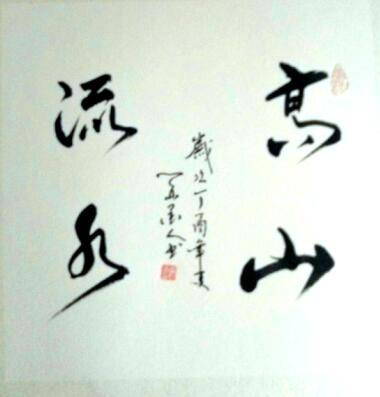 高山
流水
歲次丁酉年夏
人书